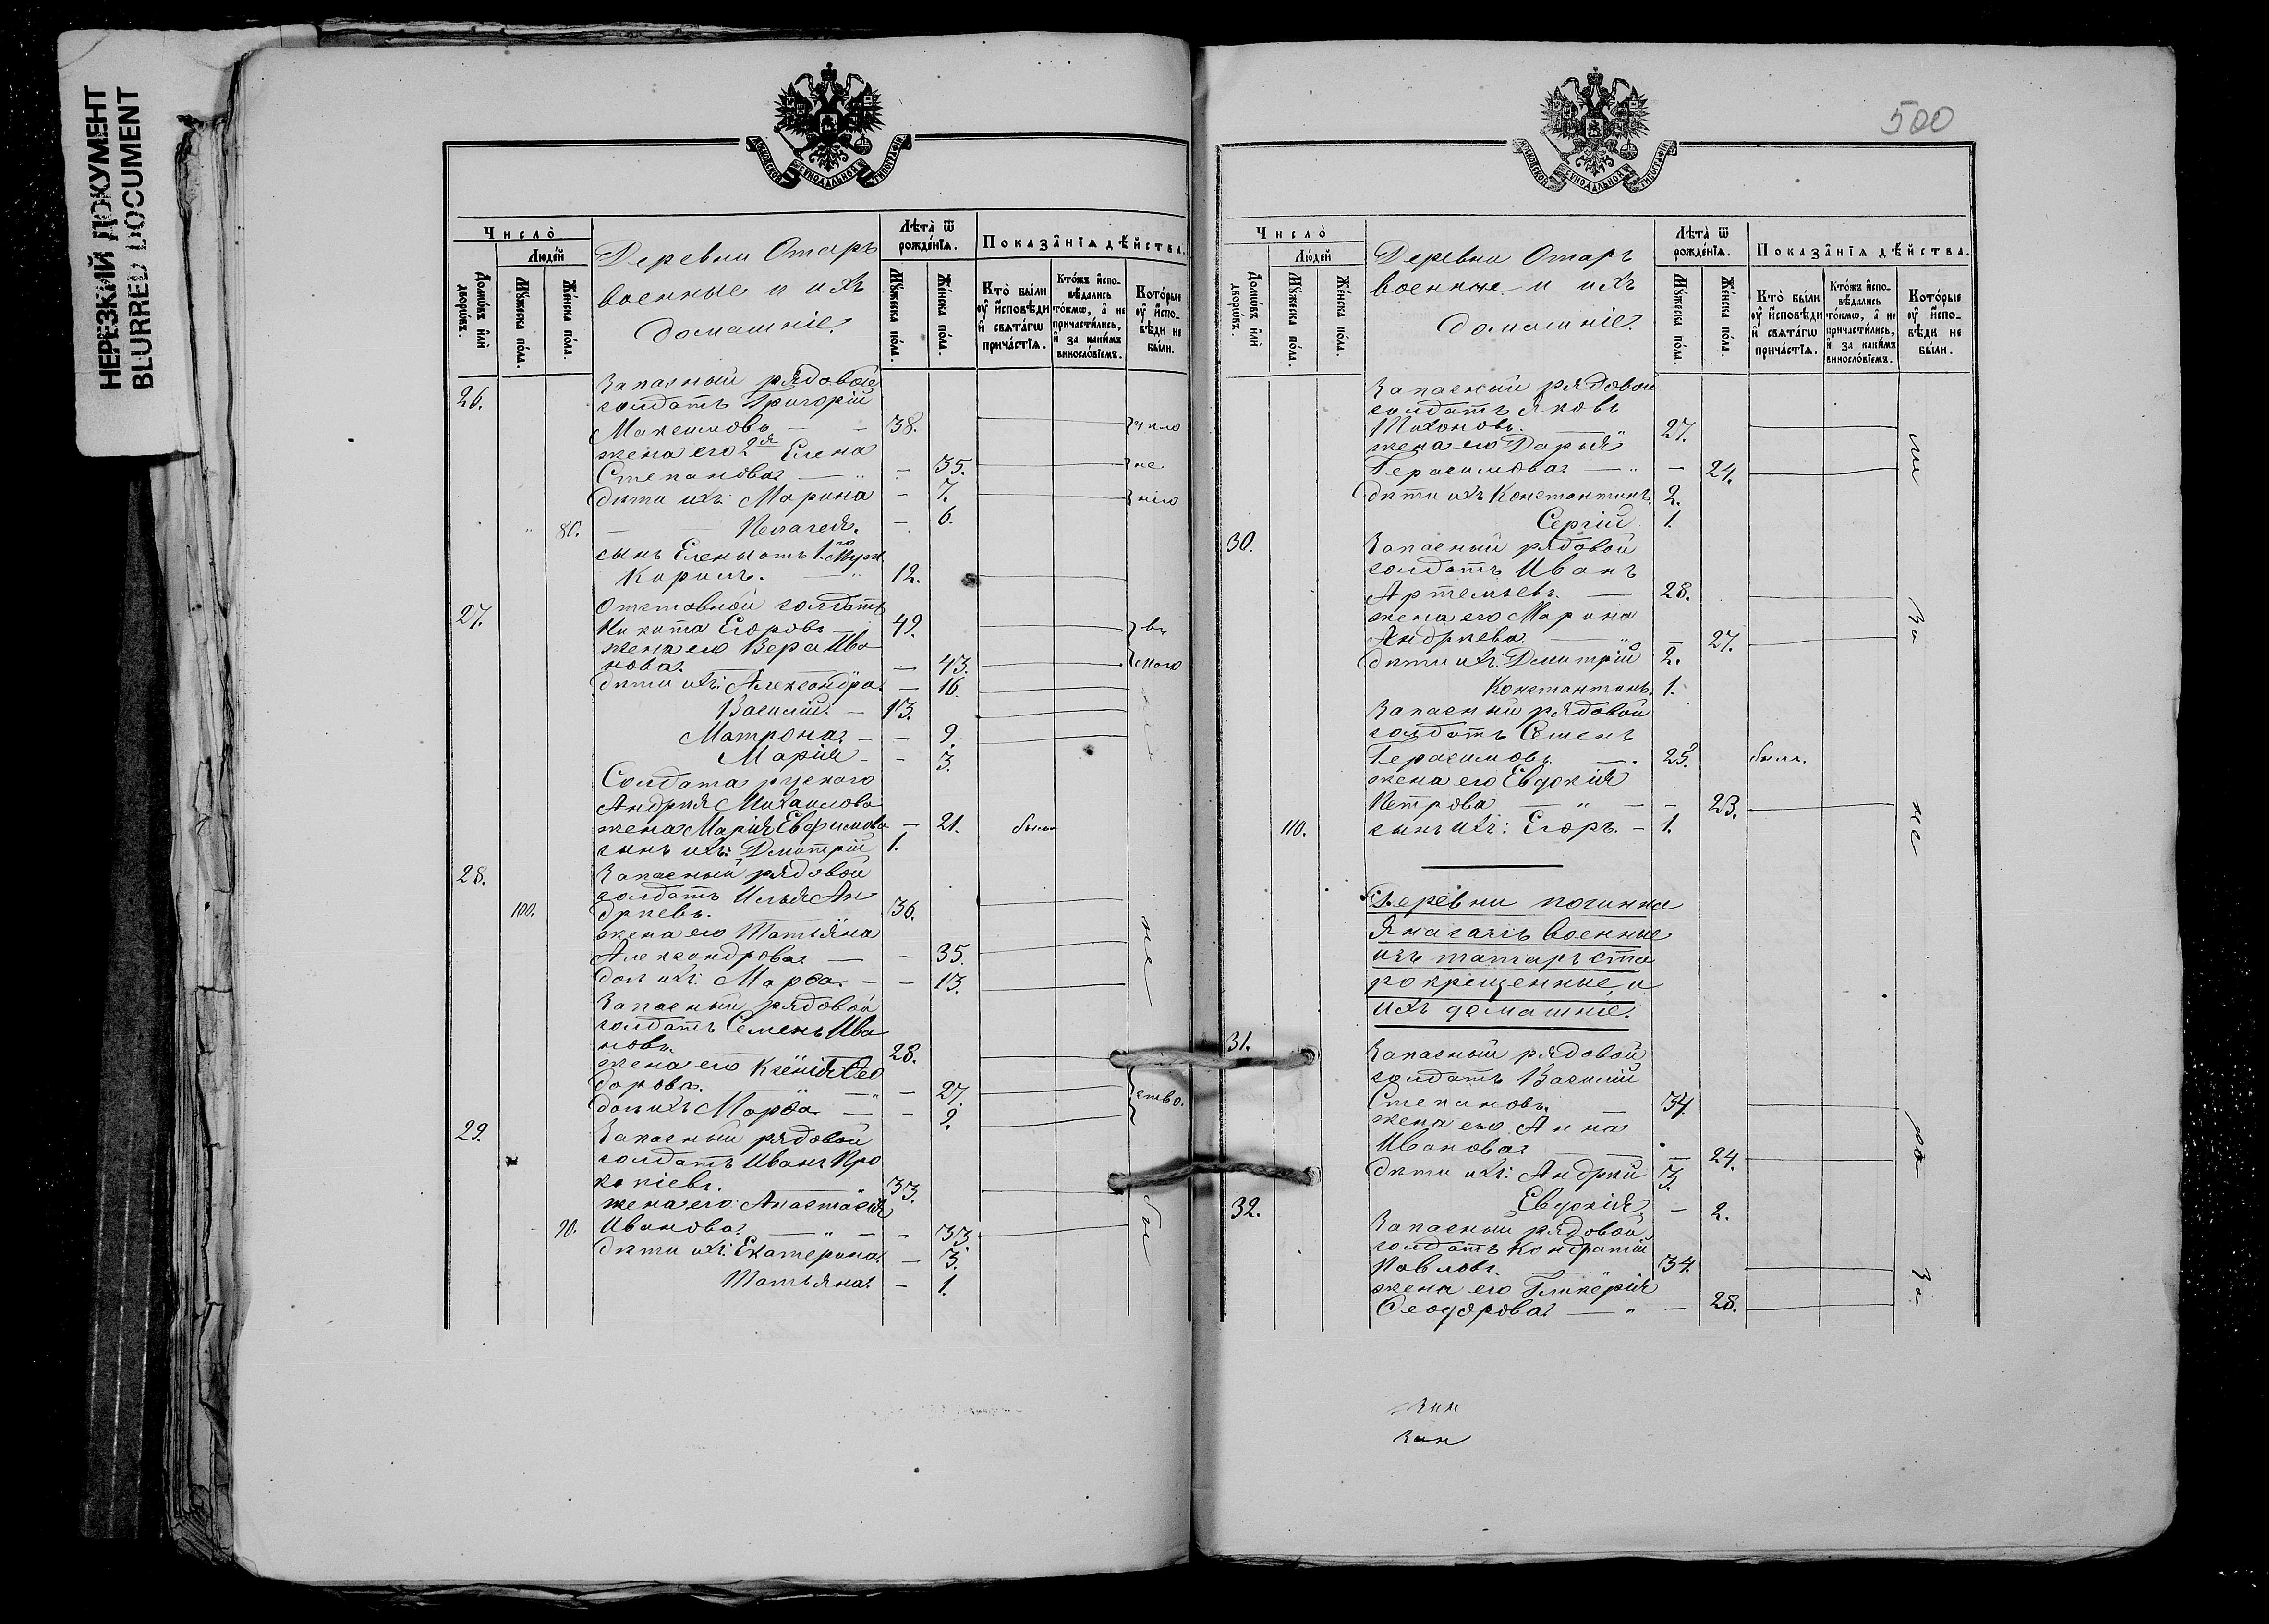 НЕРЕЗКИЙ ДОКУМЕНТ
BLURRED DOCUMENT
МОСКОВСКОЙ СѴНОДАЛЬНОЙ ТИПОГРАФІИ
Число̀
Люде́й
Домѡ́въ и҆лѝ дворѡ́въ.
Мꙋ́жеска по́ла.
Же́нска по́ла.
Деревни Отаръ
военные и ихъ
домашніе.
Лѣта̀ ѿ рожде́нїѧ.
Мꙋ́жеска по́ла.
Же́нска по́ла.
Показа̑нїѧ дѣ́йства.
Кто̀ бы́ли оу҆ и҆сповѣди и҆ свѧта́гѡ прича́стїѧ.
Кто́жъ и҆спо-вѣдались то́кмѡ, а҆ не причасти́лись, и҆ за каки́мъ виносло́вїемъ.
Кото́рые оу҆ и҆спо-вѣди не бы́ли.
26.
Запасный рядовой
солдатъ Григорій
Максимовъ — — 38.
жена его 2я Елена
Степанова — — 35. не
дѣти ихъ: Марина — 7.
80. — Пелагея. — 6.
сынъ Елены отъ 1го муж.
Кирилъ. — 12.
27. Отставной солдатъ
Никита Егоровъ 49.
жена его Вера Ива
нова. — 43.
дѣти ихъ: Александра. — 16.
Василій. — 13.
Матрона. — — 9.
Марія — — 3.
Солдата рускаго
Андрея Михаилова
жена Марія Евфимова — 21. была
сынъ ихъ: Дмитрій 1.
28. Запасный рядовой
солдатъ Илья Ан
100. дреевъ. 36.
жена его Татьяна
Александрова — — 35. не
доч ихъ: Марѳа. — — 13.
Запасный рядовой
солдатъ Семенъ Ива
новъ. 28.
жена его Ксенія Ѳео
дорова. — 27. ство.
доч ихъ Марѳа — — 2.
29. Запасный рядовой
солдатъ Иванъ Про
копіевъ. 33.
жена его: Анастасія
90. Иванова. — „ — — 33.
дѣти ихъ: Екатерина. — 3.
Татьяна. — 1.
500
МОСКОВСКОЙ СѴНОДАЛЬНОЙ ТИПОГРАФІИ
Число̀
Люде́й
Домѡ́въ и҆лѝ дворѡ́въ.
Мꙋ́жеска по́ла.
Же́нска по́ла.
Деревни Отаръ
военные и ихъ
домашніе.
Лѣта̀ ѿ рожде́нїѧ.
Мꙋ́жеска по́ла.
Же́нска по́ла.
Показа̑нїѧ дѣ́йства.
Кто̀ бы́ли оу҆ и҆сповѣди и҆ свѧта́гѡ прича́стїѧ.
Кто́жъ и҆спо-вѣдались то́кмѡ, а҆ не причасти́лись, и҆ за каки́мъ виносло́вїемъ.
Кото́рые оу҆ и҆спо-вѣди не бы́ли.
Запасный рядовой
солдатъ Яковъ
Тихоновъ. 27.
жена его Дарья
Герасимова — „ — 24. ли
дѣти ихъ Константинъ 2.
Сергій 1.
30. Запасный рядовой
солдатъ Иванъ
Артемьевъ. — 28. За
жена его Марина
Андреева. — 27.
дѣти ихъ: Дмитрій 2.
Константинъ. 1.
Запасный рядовой
солдатъ Семенъ
Герасимовъ — 25. былъ.
жена его Евдокія
Петрова — „ — — 23. не
110. сынъ ихъ: Егоръ. — 1.
Деревни починка
Янасалъ военные
изъ татаръ ста
рокрещенные, и
ихъ домашніе.
31. Запасный рядовой
солдатъ Василій
Степановъ. — 34.
жена его Анна
Иванова — — 24. ра
дѣти ихъ: Андрей 3.
Евдокія — 2.
32. Запасный рядовой
солдатъ Кондратій
Павловъ. 34. За
жена его Гликерія
Ѳеодорова — „ — 28.
Зап